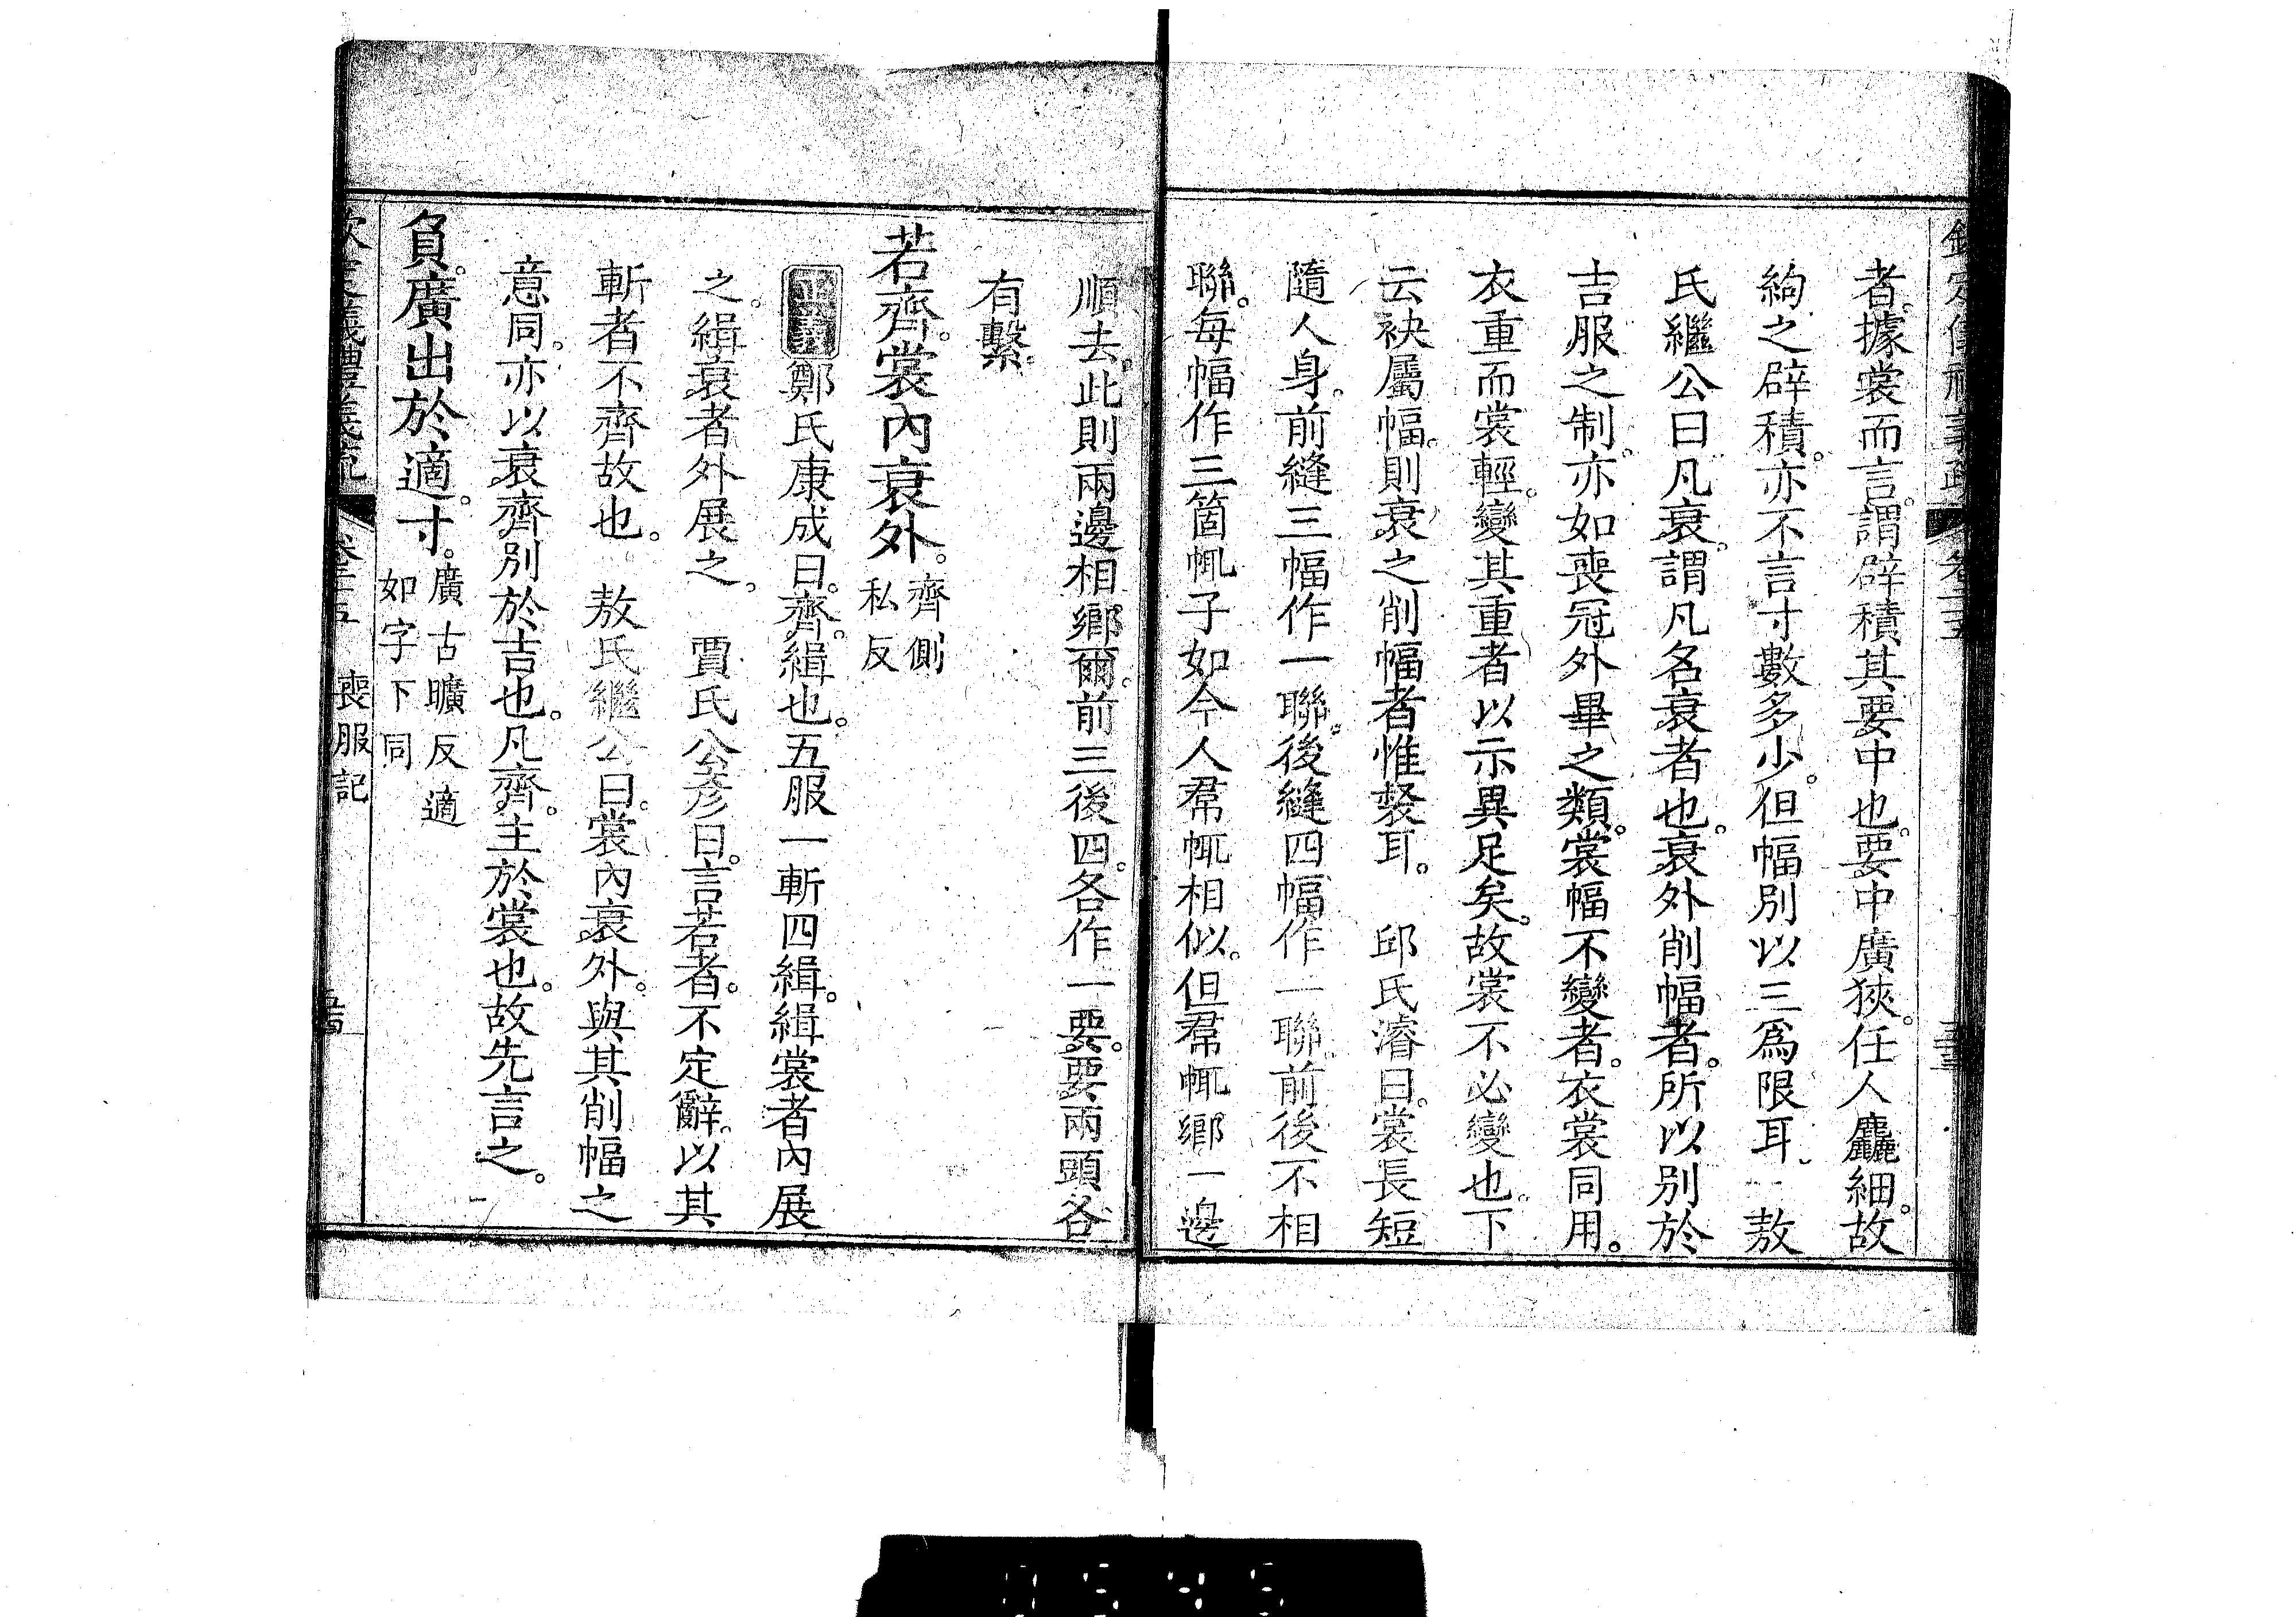 者。據裳而言。謂辟積其要中也。要中廣狹。任人麤細。故
絇之辟積。亦不言寸數多少。但幅別以三爲限耳　敖
氏繼公曰。凡衰。謂凡名衰者也。衰外削幅者。所以別於
吉服之制。亦如喪冠外畢之類。裳幅不變者。衣裳同用。
衣重而裳輕。變其重者以示異足矣。故裳不必變也。下
云袂屬幅。則衰之削幅者惟袈耳。　邱氏濬曰。裳長短
隨人身。前縫三幅作一聯。後縫四幅作一聯。前後不相
聯。每幅作三箇㡇子如今人帬㡇相似。但帬㡇鄉一邊
順去。此則兩邊相鄉爾。前三後四。各作一要。要兩頭各
有繫。
若齊。裳內衰外。齊側私反
正義 鄭氏康成曰。齊。緝也。五服一斬四緝。緝裳者內展
之。緝衰者外展之。　賈氏公彥曰。言若者。不定辭。以其
斬者不齊故也。　敖氏繼公曰。裳內衰外。與其削幅之
意同。亦以衰齊別於吉也。凡齊。主於裳也。故先言之。
負。廣出於適。寸。廣古曠反適如字下同
喪服記